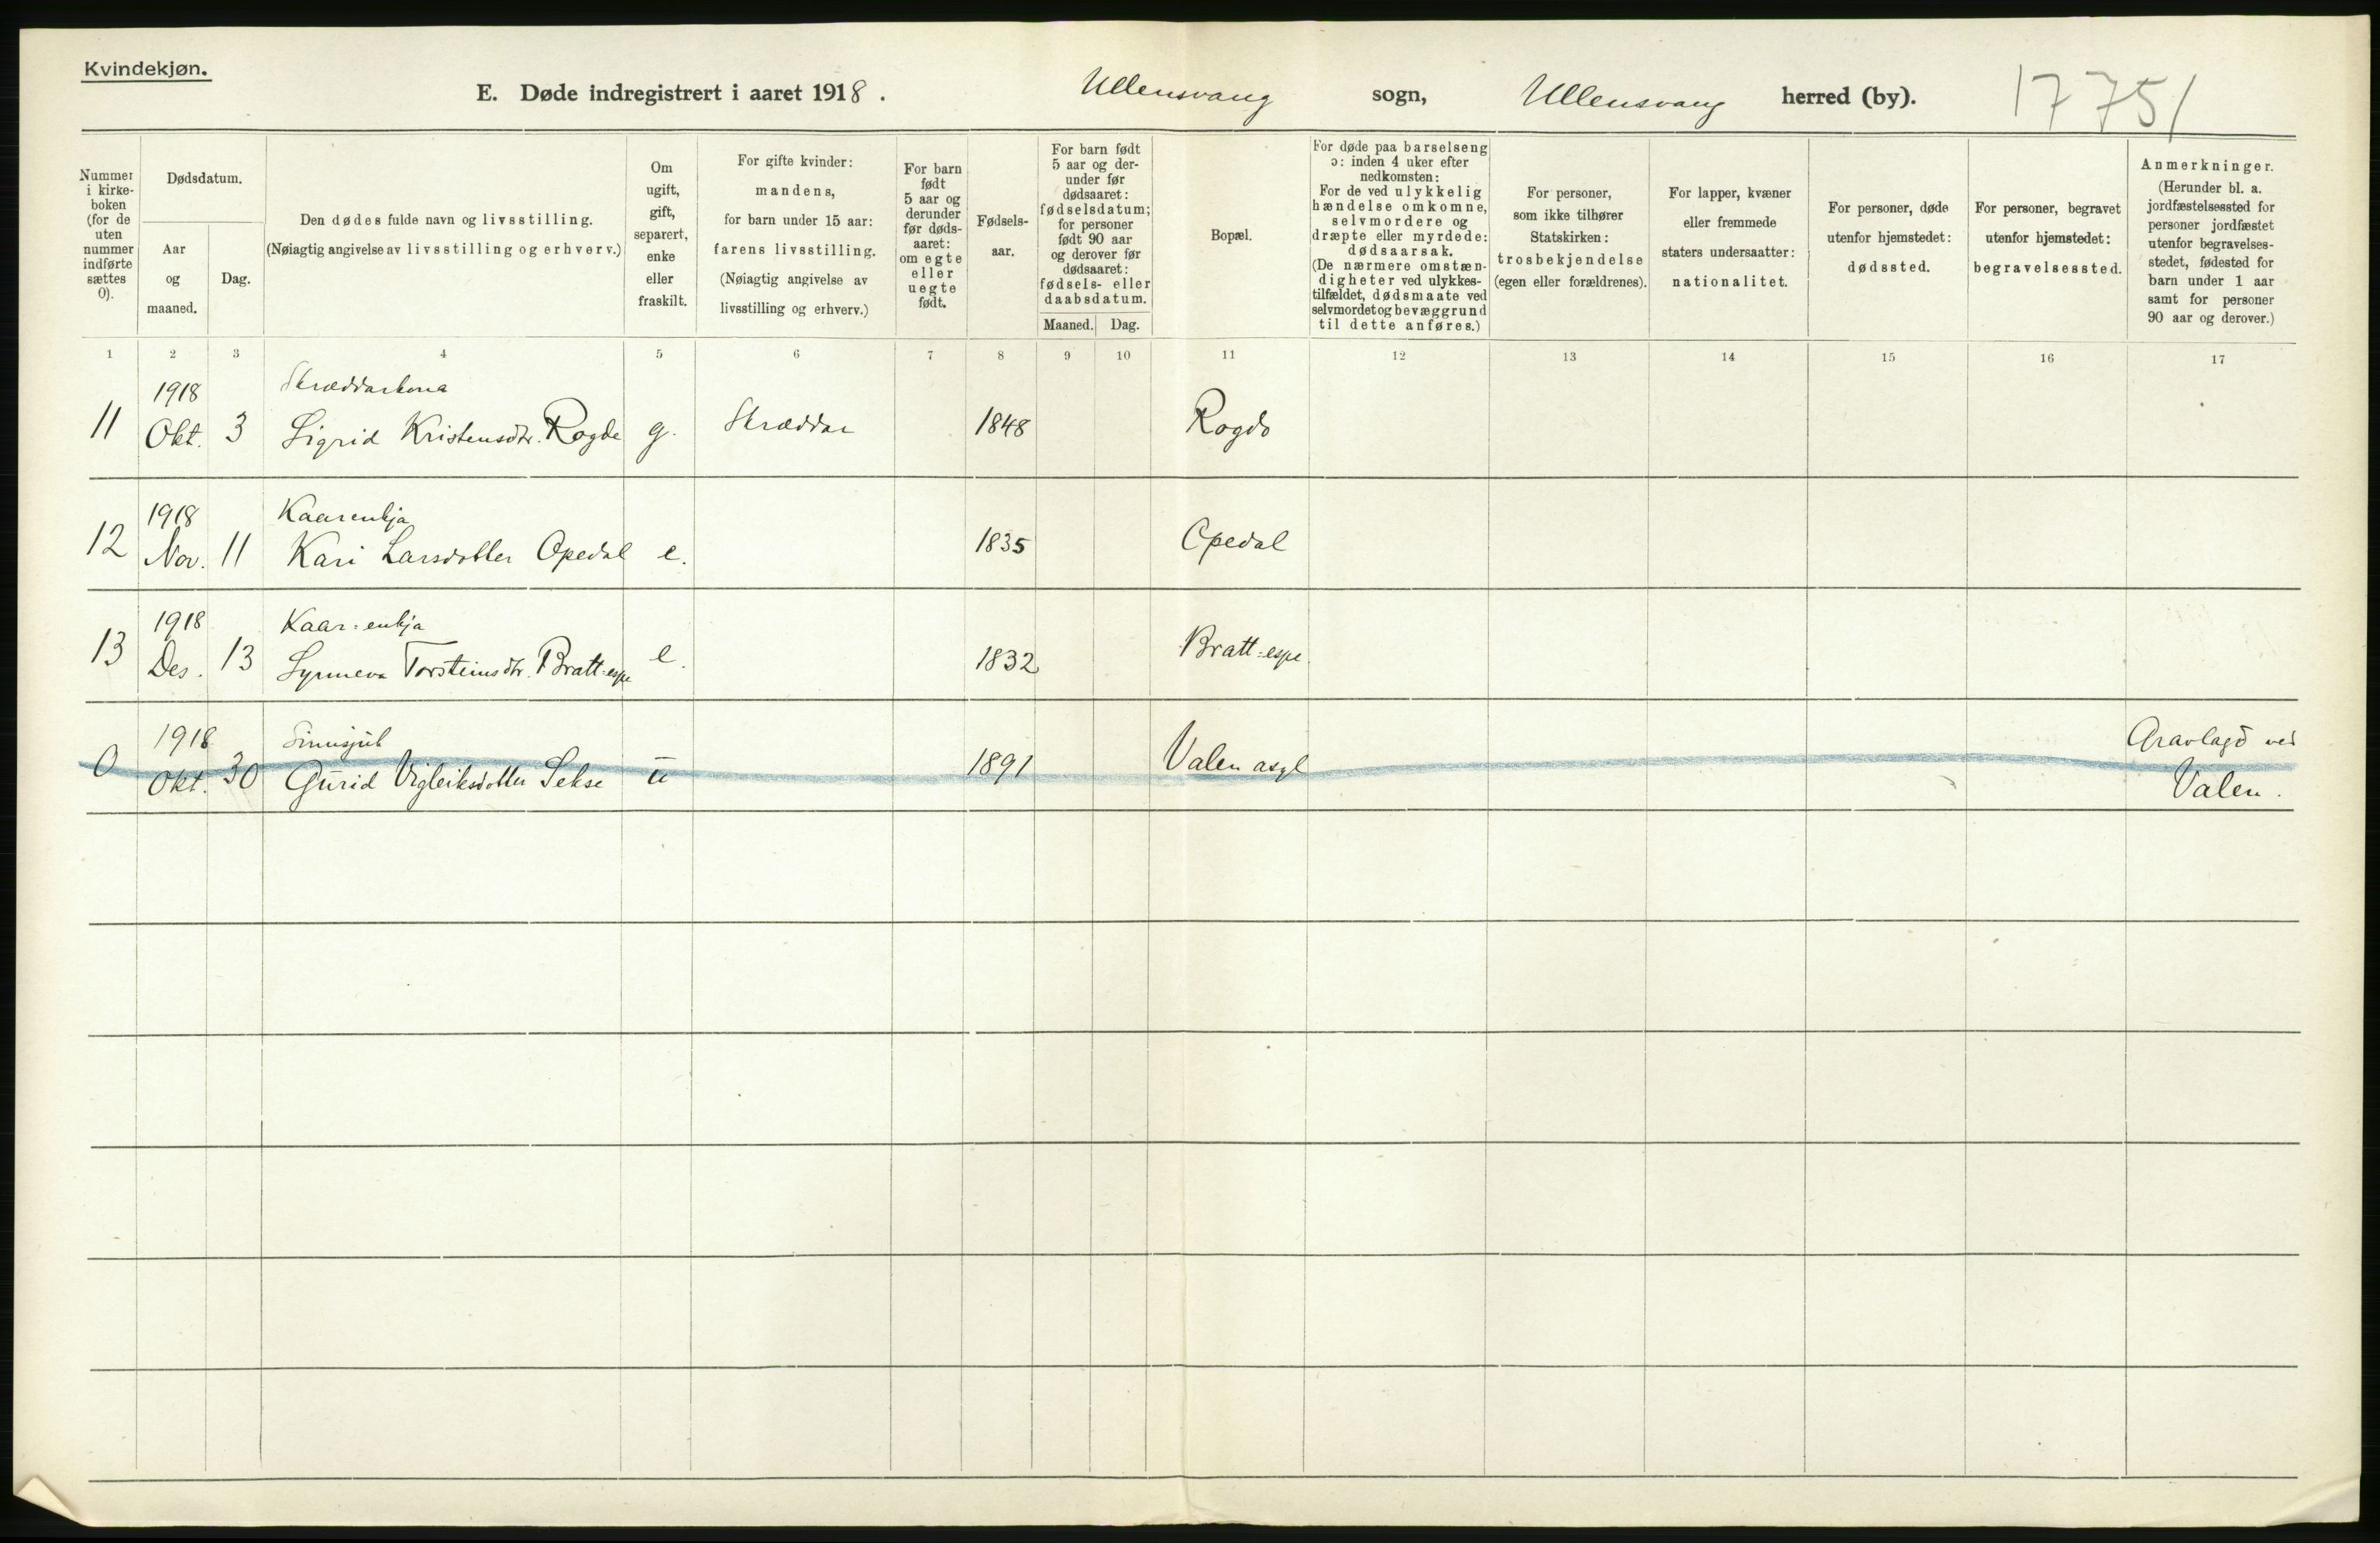 Kvindekjøn.
E. Døde indregistrert i aaret 1918. Ullensvang sogn, Ullensvang herred (by). 17751
Nummer i kirke-boken (for de uten nummer indførte sættes 0).
Dødsdatum.
Aar og maaned.
Dag.
Den dødes fulde navn og livsstilling.
(Nøiagtig angivelse av livsstilling og erhverv.)
Om ugift, gift, separert, enke eller fraskilt.
For gifte kvinder:
mandens,
for barn under 15 aar:
farens livsstilling.
(Nøiagtig angivelse av
livsstilling og erhverv.)
For barn født 5 aar og derunder før døds-aaret: om egte eller uegte født.
Fødsels-aar.
For barn født 5 aar og der-under før dødsaaret: fødselsdatum; for personer født 90 aar og derover før dødsaaret: fødsels- eller daabsdatum.
Maaned. Dag.
Bopæl.
For døde paa barselseng
ɔ: inden 4 uker efter
nedkomsten:
For de ved ulykkelig
hændelse omkomne,
selvmordere og
dræpte eller myrdede:
dødsaarsak.
(De nærmere omstæn-
digheter ved ulykkes-
tilfældet, dødsmaate ved
selvmordet og bevæggrund
til dette anføres.)
For personer,
som ikke tilhører
Statskirken:
trosbekjendelse
(egen eller forældrenes).
For lapper, kvæner
eller fremmede
staters undersaatter:
nationalitet.
For personer, døde
utenfor hjemstedet:
dødssted.
For personer, begravet
utenfor hjemstedet:
begravelsessted.
Anmerkninger.
(Herunder bl. a.
jordfæstelsessted for
personer jordfæstet
utenfor begravelses-
stedet, fødested for
barn under 1 aar
samt for personer
90 aar og derover.)
1 2 3 4 5 6 7 8 9 10 11 12 13 14 15 16 17
1918 Skræddarkona
11 Okt. 3 Sigrid Kristensdtr. Rogde g. Skræddar 1848 Rogde
1918 Kaarenkja
12 Nov. 11 Kari Larsdotter Opedal e. 1835 Opedal
1918 Kaar-enkja
13 Des. 13 Synneva Torsteinsdtr. Bratt-espe e. 1832 Bratt-espe
1918 Sinnsjuk
0 Okt. 30 Gurid Vigleiksdotter Sekse u 1891 Valen asyl Gravlagd ved
Valen.